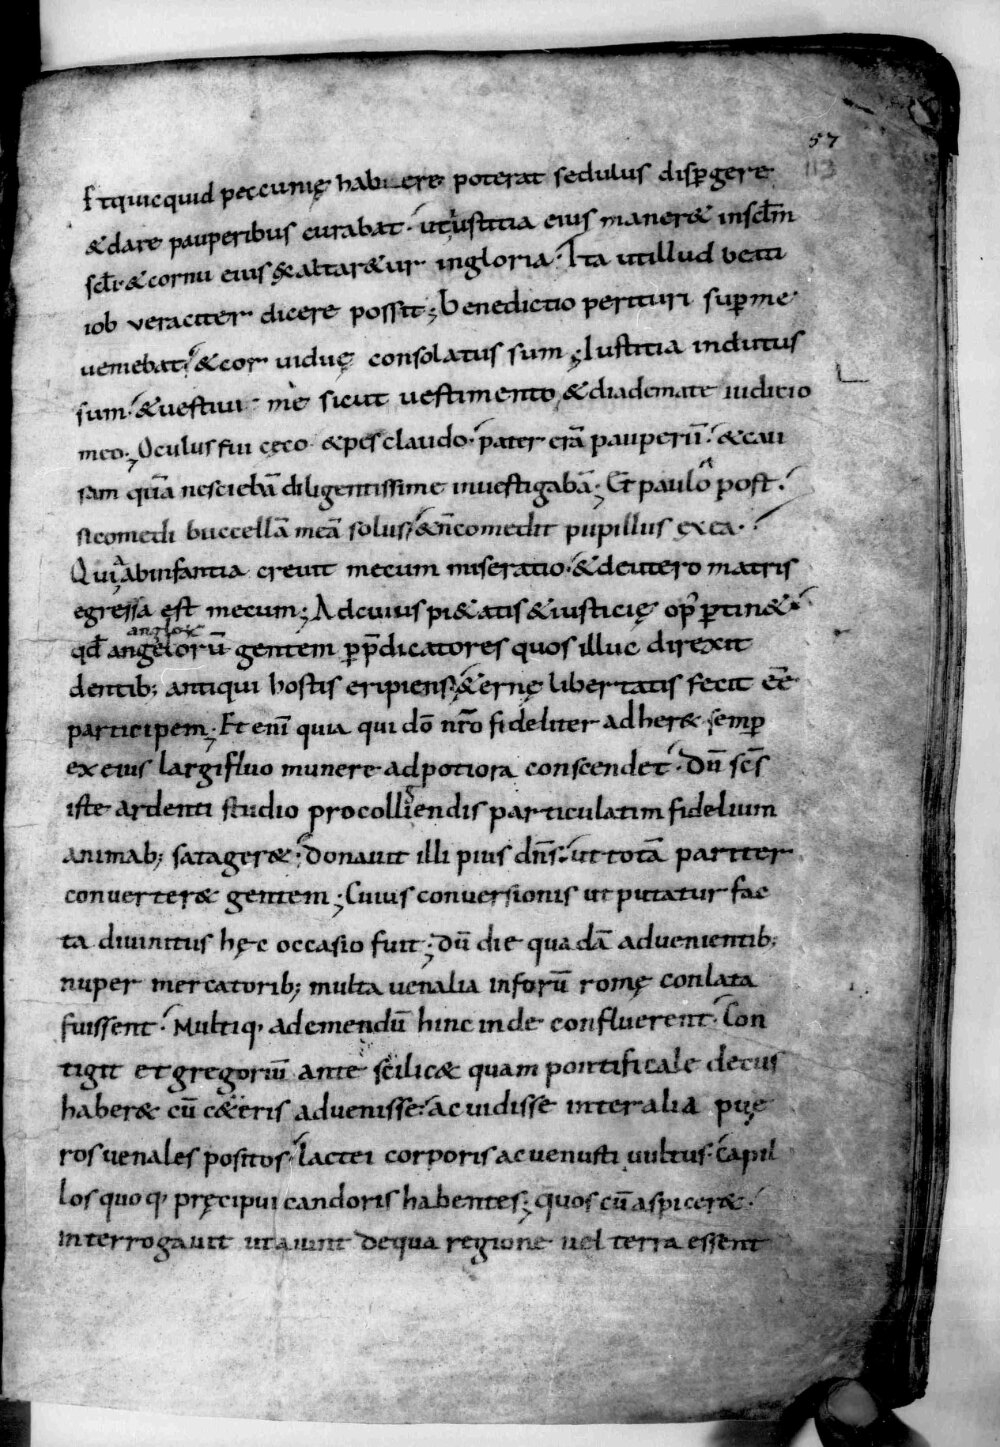 57
113
Et quicquid peccunię habere poterat sedulus disp̱gere
& dare pauperibus curabat · ut iustitia eius maner& in sclm̄
scłi · & cornu eius exaltar&ur in gloria · Ita ut illud beati
iob veraciter dicere possit ; benedictio perituri sup̱ me
veniebat · & cor viduę consolatus sum ; Iustitia indutus
sum · & vestiui me sicut uestimento & diademate iuditio
meo ; Oculus fui cęco & pes claudo · pater erā pauperū · & cau
sam quā nesciebā diligentissime inuestigabā ; Et paulo post ·
si comedi buccellā meā solus · & n̄ comedit pupillus ex ea ·
Quia ab infantia creuit mecum miseratio · & de utero matris
egressa est mecum ; Ad cuius pi&atis & iusticię op' p̱tin& ·
angloꝝ
qđ angelorū gentem p̱ p̄dicatores quos illuc direxit
dentib; antiqui hostis eripiens · & ernę libertatis fecit eē
participem ; Et eni quia qui dō nr̄o fideliter adher& semp̱
ex eius largifluo munere ad potiora conscendet · Dū scs̄
iste ardenti studio pro colligendis particulatim fidelium
animab; satager& · Donauit illi pius dn̄s · ut totā pariter
conuerter& gentem ; Cuius conuersionis ut putatur fac
ta diuinitus hęc occasio fuit ; dū die qua dā aduenientib;
nuper mercatorib; multa uenalia in forū romę conlata
fuissent · Multiq' ad emendū hinc inde confluerent · Con
tigit et gregoriū ante scilic& quam pontificale decus
haber& cū c&eris aduenisse · ac uidisse inter alia pue
ros uenales positos · lactei corporis ac uenusti uultus · capil
los quoq' pręcipui candoris habentes ; quos cū aspicer& ·
interrogauit ut aiunt de qua regione uel terra essent